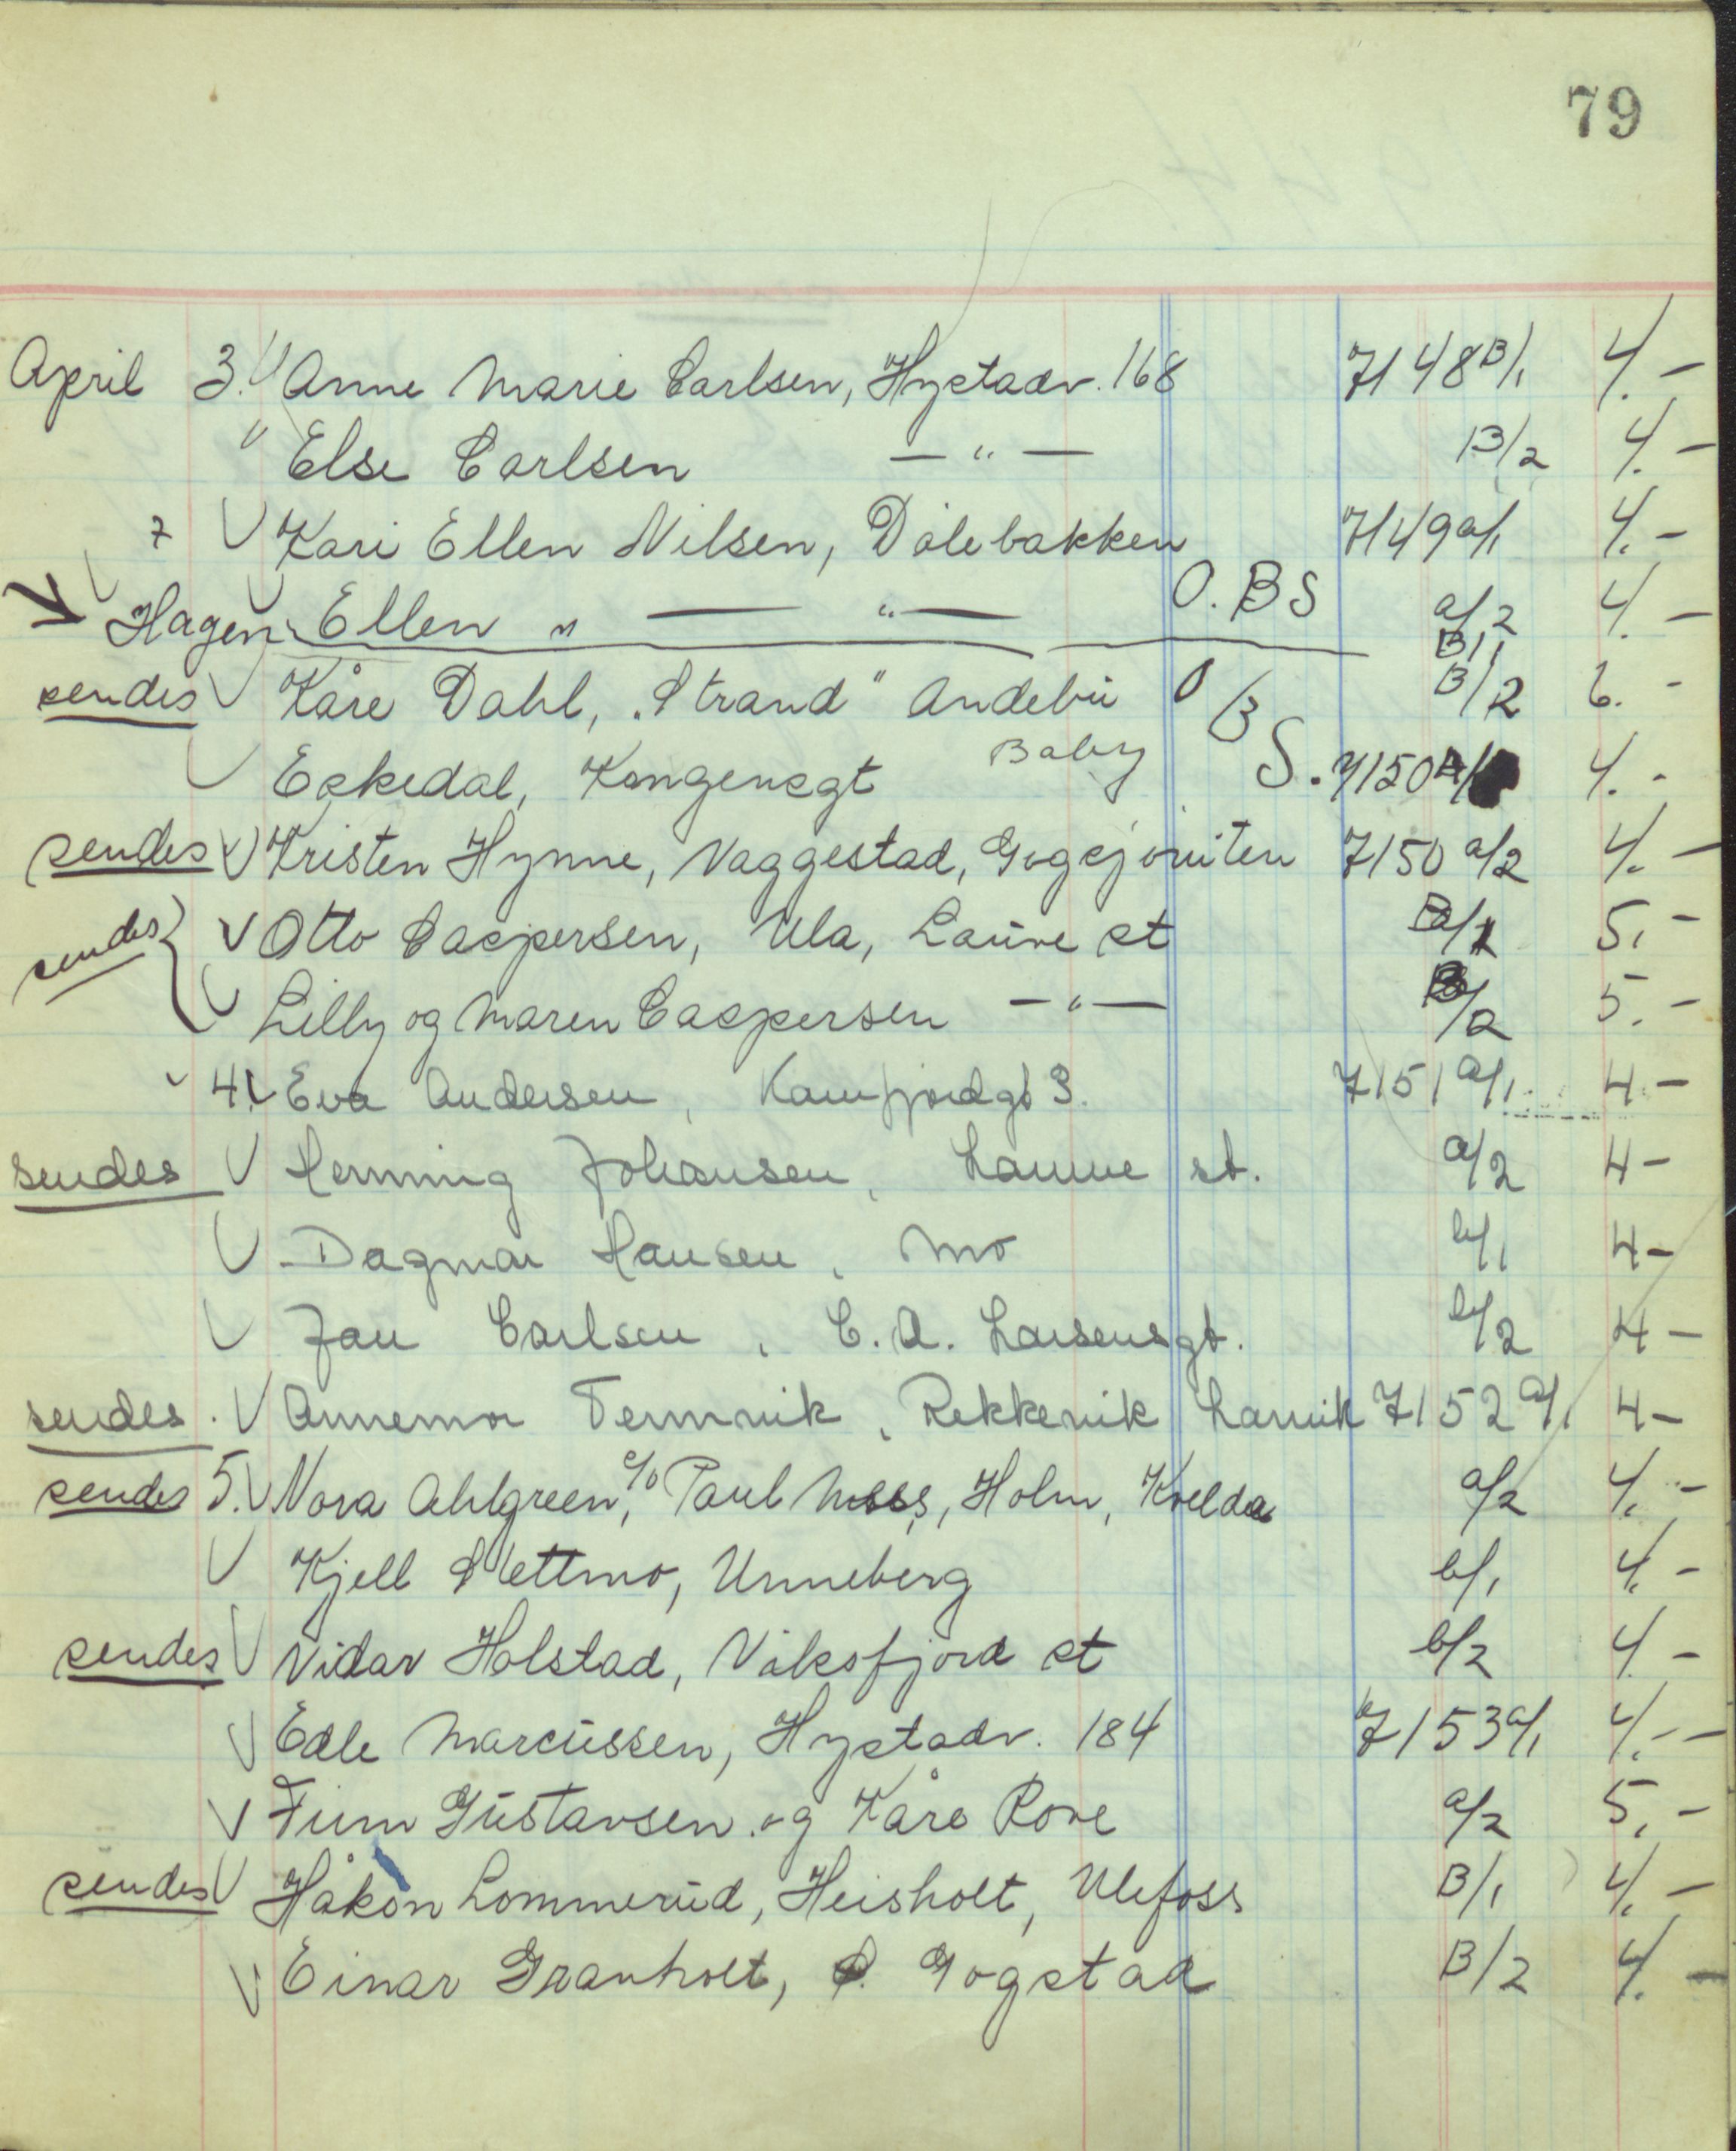 79
April 3. Anne Marie Carlsen, Hystadv. 168 7148 B/1 4.-
" Else Carlsen — " — B/2 4.-
7 Kari Ellen Nilsen, Dølebakken 7149 a/1 4.-
Hagen Ellen " — " — O.BS a/2 4.-
B/1
sendes Kåre Dahl, "Strand" Andebu OBS. B/2 6.-
Eskedal, Kongensgt Baby 7150 4.-
sendes Kristen Hynne, Vaggestad, 7150 a/2 4.-
sendes Otto Caspersen, Ula, Lauve st 5,-
Lilly og Maren Caspersen — " — B/2 5.-
4. Eva Andersen, Kamfjordgt 3. 7151 a/1 4-
sendes Henning Johansen, Lauve st. a/2 4-
Dagmar Hansen, Mo b/1 4-
Jan Carlsen, C. A. Larsensgt. b/2 4-
sendes. Annemor Temmik, Rekkevik Larvik 7152 a/1 4-
sendes 5. Nora Ahlgreen, c/o Paul Moss, Holm, Kvelde a/2 4.-
Kjell Slettmo, Unneberg b/1 4.-
sendes Vidar Holstad, Viksfjord st b/2 4.-
Edle Marcussen, Hystadv. 184 7153 a/1 4.-
Finn Gustavsen og Kåre Rove a/2 5,-
sendes Håkon Lommerud, Heisholt, Ulefoss B/1 4.-
Einar Granholt, Gogstad B/2 4.-